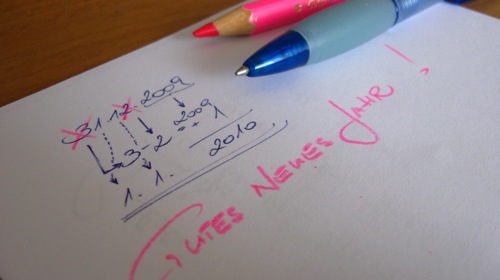 31.12.2009
3-2 2009
+ 1
1. 1. 2010
GUTES NEUES JAHR!